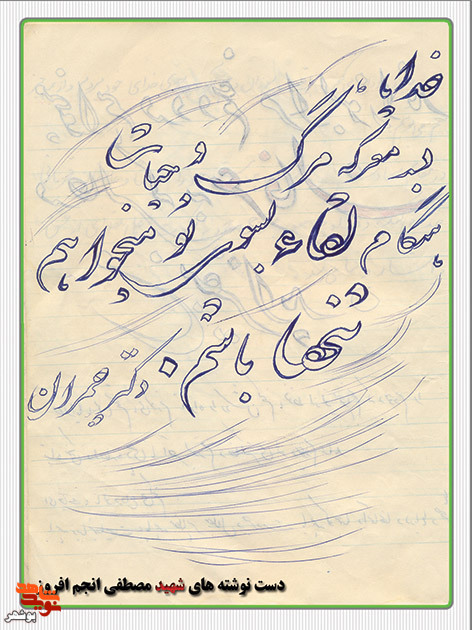 خدایا
در معرکه مرگ و حیات
هنگام لقاء بسوی تو میخواهم
تنها باشم.
دکتر چمران
دست نوشته های شهید مصطفی انجم افروز
نوید شاهد
بوشهر